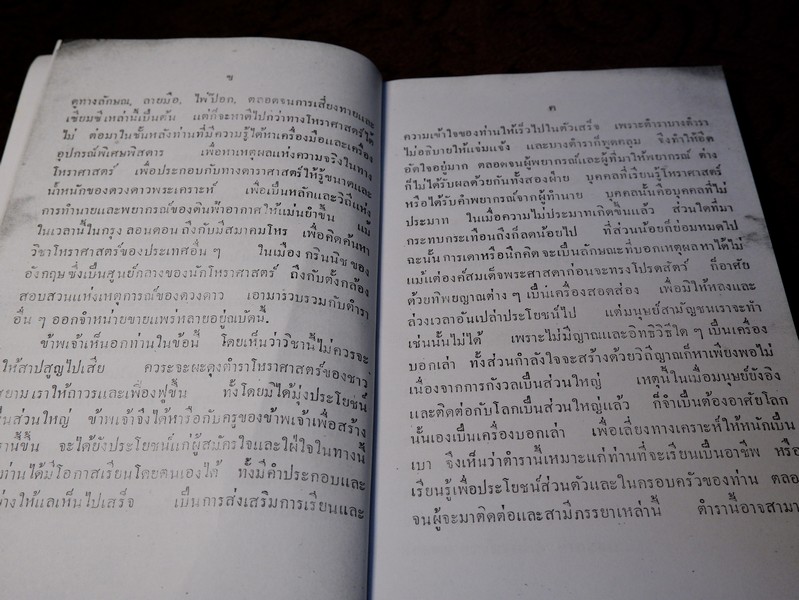 ข
ดูทางลักษณ, ลายมือ, ไพ่ป๊อก, ตลอดจนการเสี่ยงทายและ
เซียมซีเหล่านี้เป็นต้น แต่ก็จะหาดีไปกว่าทางโหราศาสตร์ได้
ไม่ ต่อมาในชั้นหลังท่านที่มีความรู้ได้หาเครื่องมือและเครื่อง
อุปกรณ์พิเศษพิสดาร เพื่อหาเหตุผลแห่งความจริงในทาง
โหราศาสตร์ เพื่อประกอบกับทางตาราศาสตร์ให้รู้ขนาดและ
น้ำหนักของดวงดาวพระเคราะห์ เพื่อเป็นหลักและวิถีแห่ง
การทำนายและพยากรณ์ของดินฟ้าอากาศให้แม่นยำขึ้น แม้
ในเวลานี้ในกรุงลอนดอน ถึงกับมีสมาคมโหร เพื่อคิดค้นหา
วิชาโหราศาสตร์ของประเทศอื่น ๆ ในเมืองกรินนิชของ
อังกฤษ ซึ่งเป็นศูนย์กลางของนักโหราศาสตร์ ถึงกับตั้งกล้อง
สอบสวนแห่งเหตุการณ์ของดวงดาว เอามารวบรวมกับตำรา
อื่น ๆ ออกจำหน่ายขายแพร่หลายอยู่ณบัดนี้.
ข้าพเจ้าเห็นอกท่านในข้อนี้ โดยเห็นว่าวิชานี้ไม่ควรจะ
ให้สาปสูญไปเสีย ควรจะผะดุงตำราโหราศาสตร์ของชาว
สยามเราให้ถาวรและเฟื่องฟูขึ้น ทั้งโดยมิได้มุ่งประโยชน์
เป็นส่วนใหญ่ ข้าพเจ้าจึงได้หารือกับครูของข้าพเจ้าเพื่อสร้าง
รานี้ขึ้น จะได้ยังประโยชน์แก่ผู้สมัครใจและใฝ่ใจในทางนี้
ท่านได้มีโอกาสเรียนโดยตนเองได้ ทั้งมีคำประกอบและ
างให้แลเห็นไปเสร็จ เป็นการส่งเสริมการเรียนและ
ค
ความเข้าใจของท่านให้เร็วไปในตัวเสร็จ เพราะตำราบางตำรา
ไม่อธิบายให้แจ่มแจ้ง และบางตำราก็พูดคลุม จึงทำให้อึด
อัดใจอยู่มาก ตลอดจนผู้พยากรณ์และผู้ที่มาให้พยากรณ์ ต่าง
ก็ไม่ได้รับผลด้วยกันทั้งสองฝ่าย บุคคลที่เรียนรู้โหราศาสตร์
หรือได้รับคำพยากรณ์จากผู้ทำนาย บุคคลนั้นคือบุคคลที่ไม่
ประมาท ในเมื่อความไม่ประมาทเกิดขึ้นแล้ว ส่วนใดที่มา
กระทบกระเทือนถึงก็ลดน้อยไป ที่ส่วนน้อยก็ย่อมหมดไป
ฉะนั้น การเดาหรือนึกคิด จะเป็นลักษณะที่บอกเหตุผลหาได้ไม่
แม้แต่องค์สมเด็จพระศาสดาก่อนจะทรงโปรดสัตว์ ก็อาศัย
ด้วยทิพยญาณต่าง ๆ เป็นเครื่องสอดส่อง เพื่อมิให้หลงและ
ล่วงเวลาอันเปล่าประโยชน์ไป แต่มนุษย์สามัญชนเราจะทำ
เช่นนั้นไม่ได้ เพราะไม่มีญาณและอิทธิวิธีใด ๆ เป็นเครื่อง
บอกเล่า ทั้งส่วนกำลังใจจะสร้างด้วยวิถีญาณก็หาเพียงพอไม่
เนื่องจากการกังวลเป็นส่วนใหญ่ เหตุนี้ในเมื่อมนุษย์ยังอิง
และติดต่อกับโลกเป็นส่วนใหญ่แล้ว ก็จำเป็นต้องอาศัยโลก
นั้นเองเป็นเครื่องบอกเล่า เพื่อเลี่ยงทางเคราะห์ให้หนักเป็น
เบา จึงเห็นว่าตำรานี้เหมาะแก่ท่านที่จะเรียนเป็นอาชีพ หรือ
เรียนรู้เพื่อประโยชน์ส่วนตัวและในครอบครัวของท่าน ตลอ
จนผู้จะมาติดต่อและสามีภรรยาเหล่านี้ ตำรานี้อาจสามา